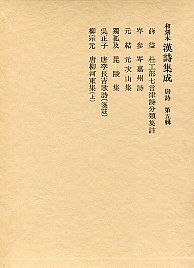 和刻本
漢詩集成 唐詩 第五輯
薛益 杜工部七言律詩分類集註
岑参 岑嘉州詩
元結 元次山集
獨孤及 毘陵集
吳正子 唐李長吉歌詩(箋註)
柳宗元 唐柳河東集(上)